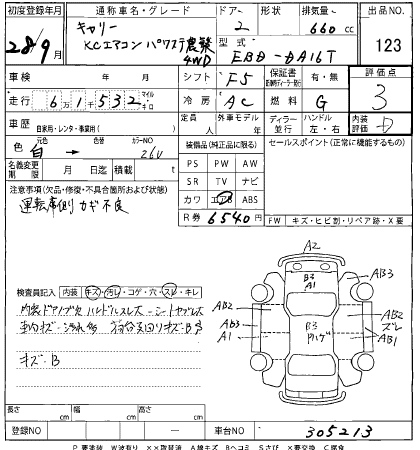 初度登録年月 通称車名・グレード ドア 形状 排気量 出品No.
28/9月 キャリー 2 660 cc 123
KCエアコン パワステ農繁 4WD
型式 EBD-DA16T
車検 年 月 シフト F5 保証書 有・無 評価点
走行 6万1千532 マイル キロ 冷房 AC 燃料 G 3
車歴 自家用・レンタ・事業用( ) 定員 人 外車モデル 年 ディーラー 並行 ハンドル 左・右 内装評価 D
色 元色 白 → 色替 カラーNo. 26U
装備品(純正品に限る) セールスポイント(正常に機能する物)
PS PW AW
名義変更期限 月 日迄 積載 t
SR TV ナビ
注意事項(欠品・修復・不具合箇所および状態) カワ エアB ABS
運転席側カギ不良
R券 6540円
FW キズ・ヒビ割・リペア跡・X要
A2
B3
A1
AB3
AB2
AB3
A1
B3
AB2
ズレ
AB1
検査員記入 内装 キズ・汚レ・コゲ・穴・スレ・キレ
キズ・B
長さ cm 幅 cm 高さ cm
登録NO 車台NO 305213
P 要塗装 W波有り XX取替済 A線キズ Bヘコミ Sさび X要交換 C腐食